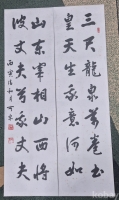 三尺龍泉萬卷書
皇天生我意何如
山東宰相山西將
彼丈夫兮我丈夫